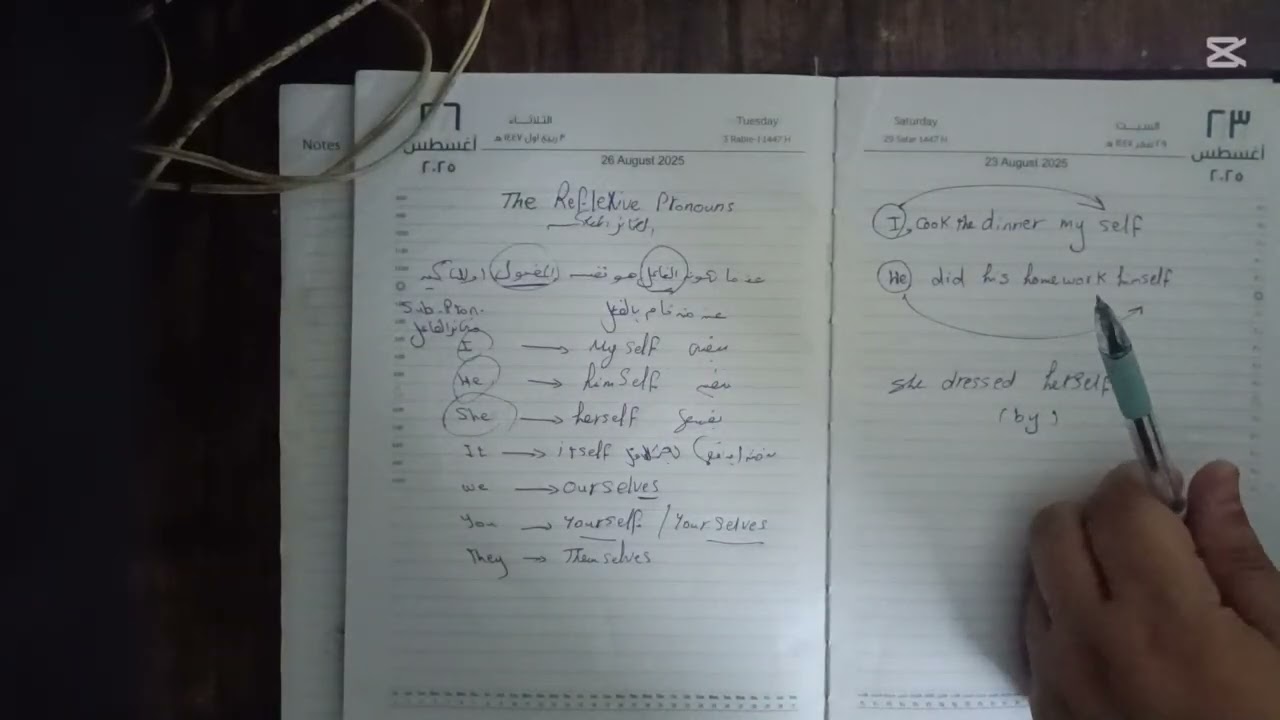 Notes
٢٦
أغسطس
٢٠٢٥
الثلاثاء
٣ ربيع اول ١٤٤٧ هـ
Tuesday
3 Rabie-I 1447 H
26 August 2025
The Reflexive Pronouns
عندما تكون الفاعل هو نفسه المفعول او للتأكيد
Sub. Pron.
ضمائر الفاعل
قام بالفعل
I → My self نفسي
He → himself نفسه
She → herself نفسها
It → itself
we → ourselves
You → Yourself / Yourselves
They → Themselves
Saturday
29 Safar 1447 H
السبت
٢٩ صفر ١٤٤٧ هـ
23 August 2025
٢٣
أغسطس
٢٠٢٥
I, cook the dinner my self
He did his homework himself
she dressed herself
(by)